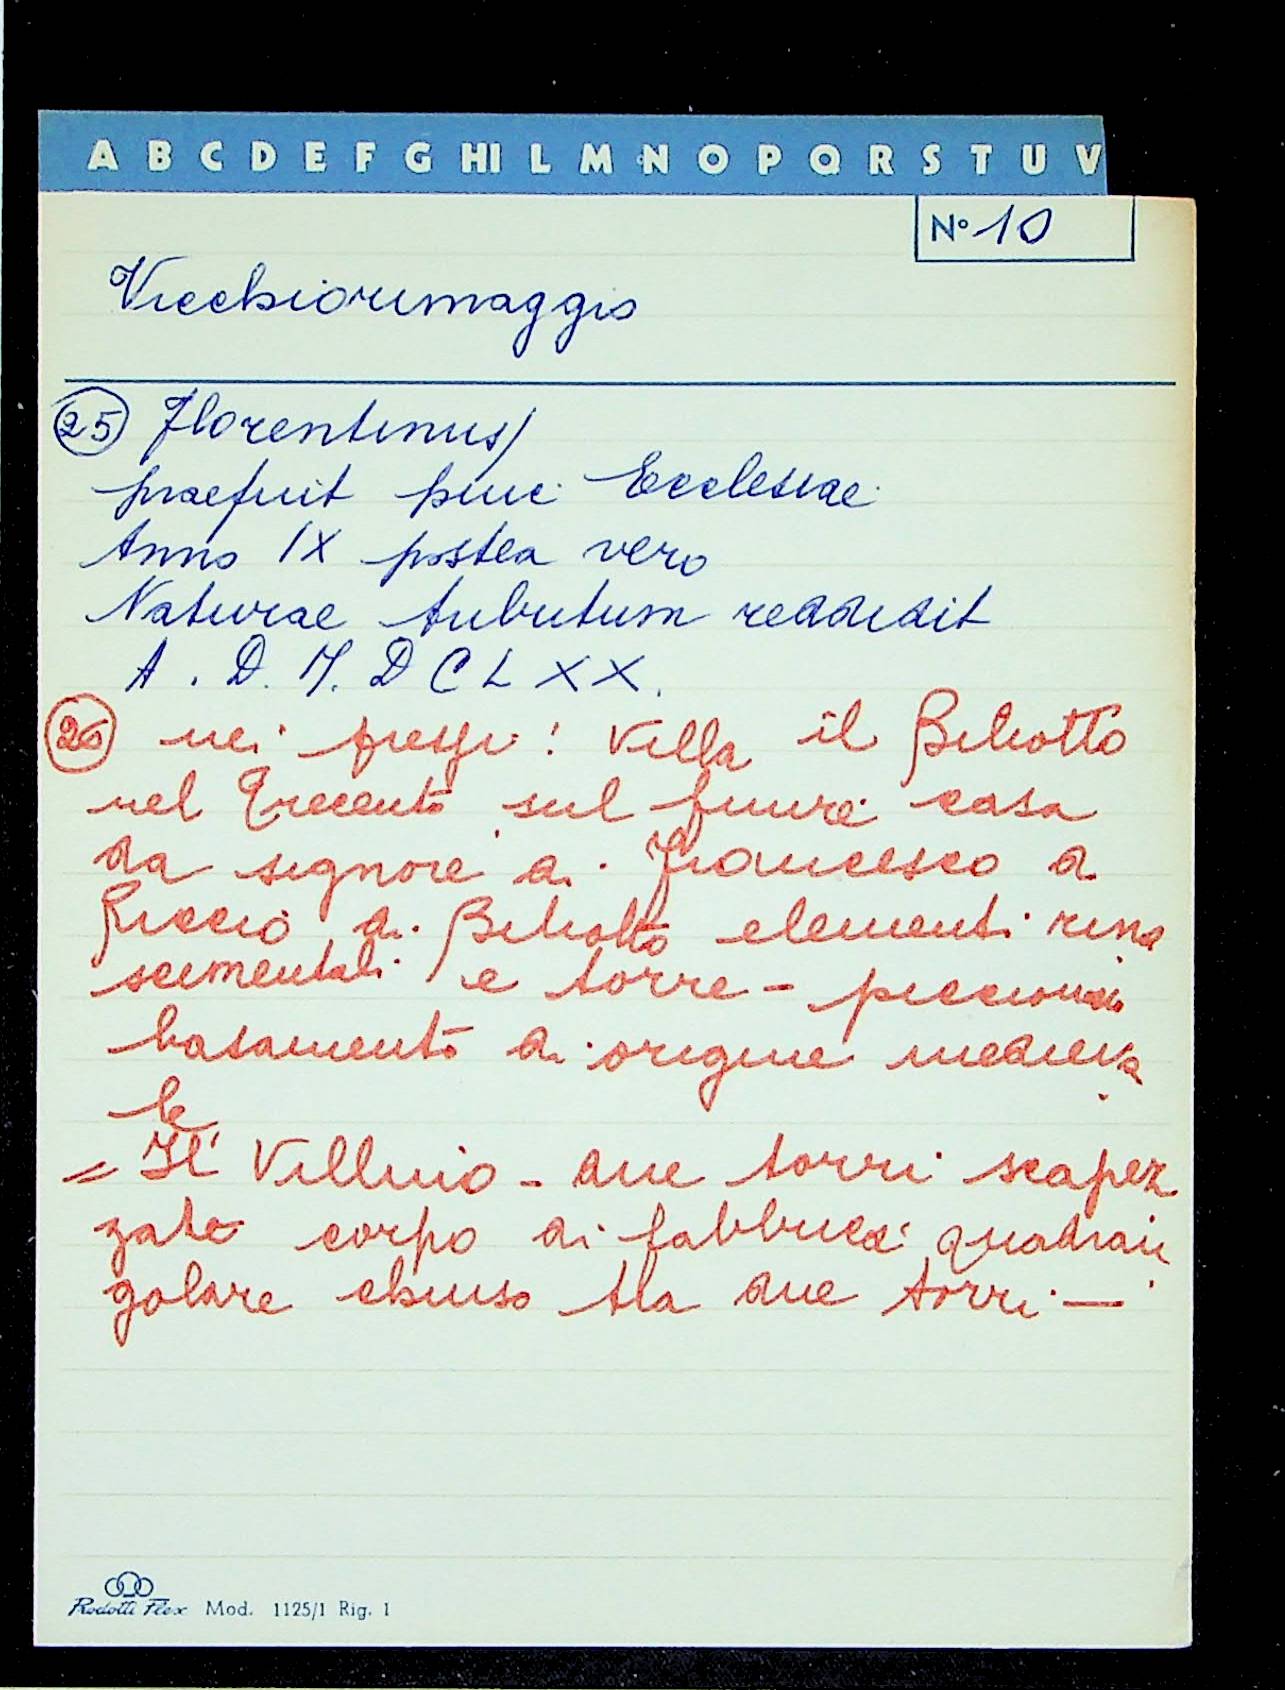 A B C D E F G HI L M N O P Q R S T U V
N° 10
Vicchiorimaggio
25 Florentinus/
praefuit huic Ecclesiae
Anno IX postea vero
Naturae tributum reddidit
A. D. M. D C L X X.
26 nei pressi: Villa il Biliotto
nel Trecento sul fiume casa
da signore di Francesco di
Riccio di Biliotto elementi rina
scimentali e torre - piccionaia
basamento di origine medieva
le
= Il Villino - due torri scapez
zate corpo di fabbrica quadran
golare chiuso tra due torri —
Prodotti Flex Mod. 1125/1 Rig. 1